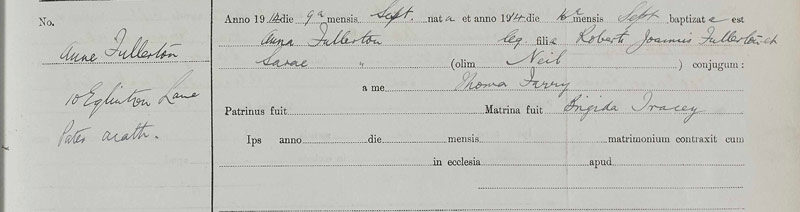 No.
Anne Fullerton
10 Eglinton Lane
Pater acath.
Anno 1914 die 9a mensis Sept. nata et anno 1914 die mensis Sept baptizata est
Anna Fullerton leg. filia Robert Joannis Fullerton et
Sarae " (olim Neil ) conjugum :
a me Thoma Farry
Patrinus fuit Matrina fuit Brigida Tracey
Ips anno die mensis matrimonium contraxit cum
in ecclesia apud